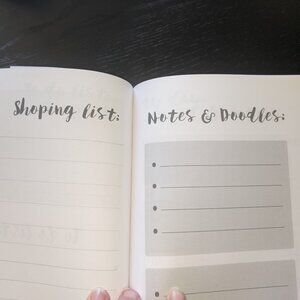 Shoping list:
Notes & Doodles: